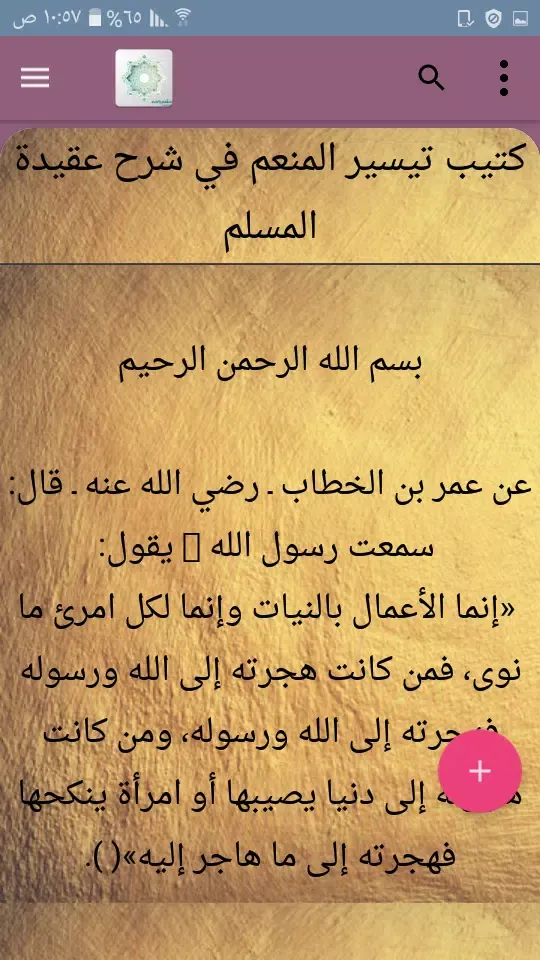 ١٠:٥٧ ص %٦٥
كتيب تيسير المنعم في شرح عقيدة
المسلم
بسم الله الرحمن الرحيم
عن عمر بن الخطاب ـ رضي الله عنه ـ قال:
سمعت رسول الله يقول:
«إنما الأعمال بالنيات وإنما لكل امرئ ما
نوى، فمن كانت هجرته إلى الله ورسوله
إلى الله ورسوله، ومن كانت
إلى دنيا يصيبها أو امرأة ينكحها
فهجرته إلى ما هاجر إليه»( ).